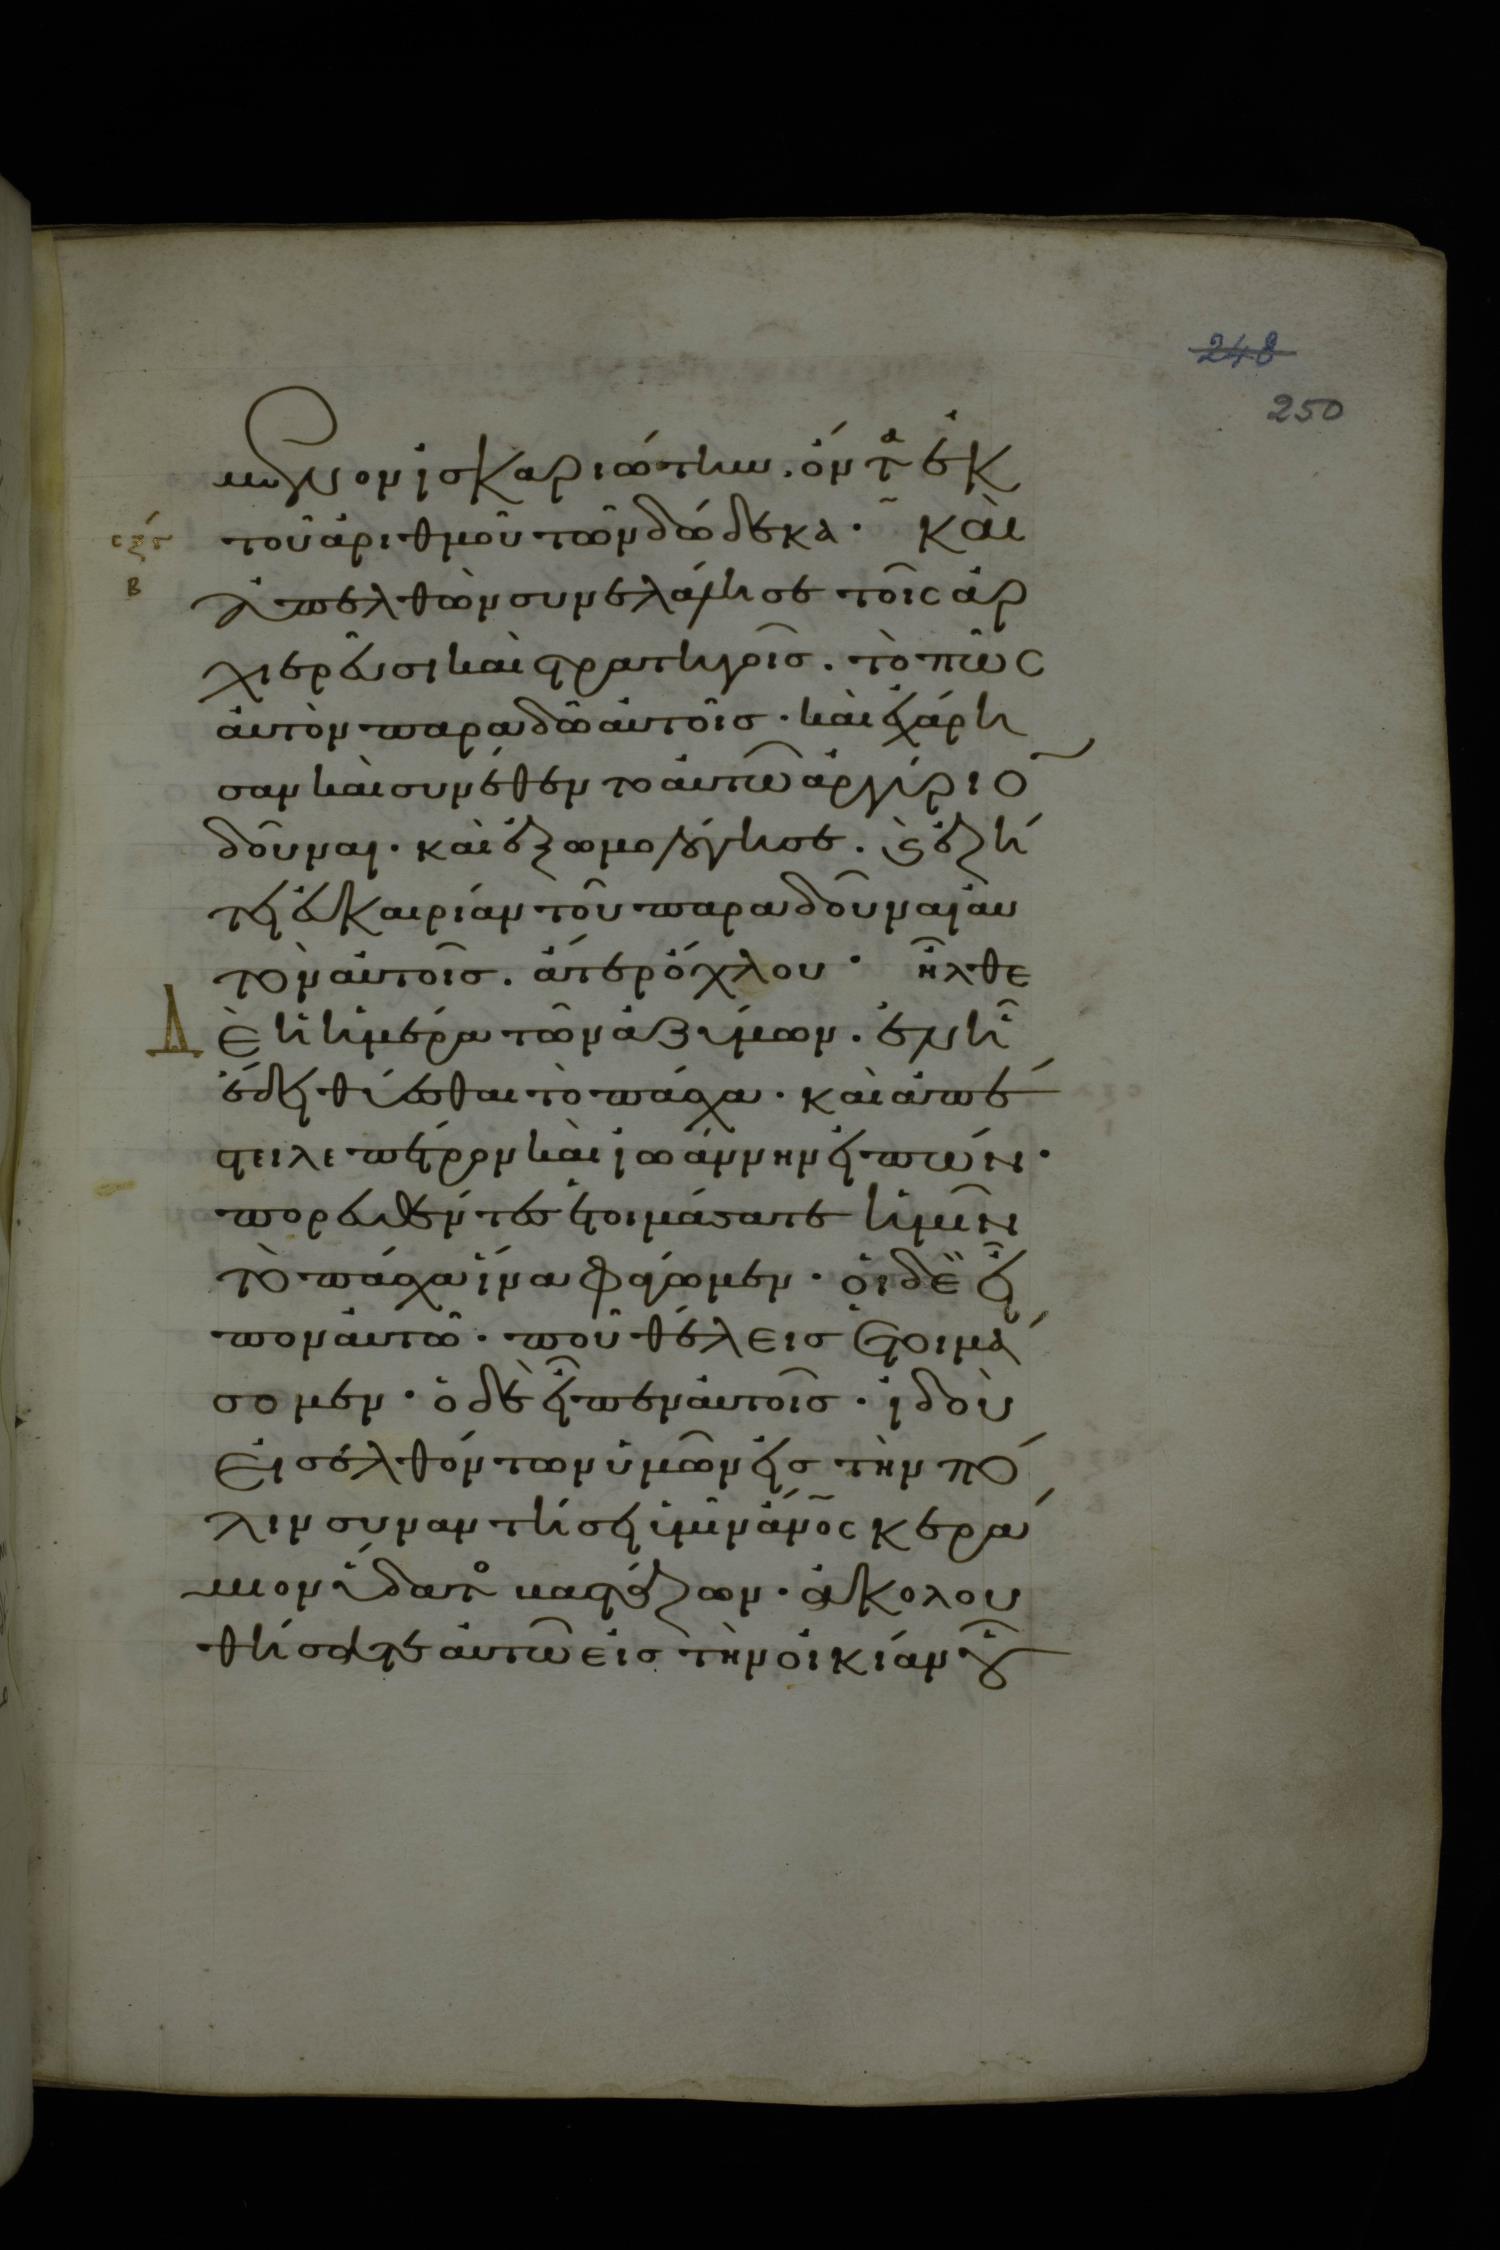 248
250
μενον ἰσκαριώτην. ὄντα ἐκ
τοῦ ἀριθμοῦ τῶν δώδεκα· καὶ
σξε
β
ἀπελθὼν συνελάλησε τοῖς ἀρ
χιερεῦσι καὶ στρατηγοῖς. τὸ πῶς
αὐτὸν παραδῶ αὐτοῖς· καὶ ἐχάρη
σαν καὶ συνέθεντο αὐτῶ ἀργύριο
δοῦναι· καὶ ἐξωμολόγησε. καὶ ἐζή
τει εὐκαιρίαν τοῦ παραδοῦναι αὐ
τὸν αὐτοῖς. ἄτερ ὄχλου· ἦλθε
Δ
ὲ ἡ ἡμέρα τῶν ἀζύμων. ἐν ἧ
ἔδει θύεσθαι τὸ πάσχα· καὶ ἀπέ
στειλε πέτρον καὶ ἰωάννην εἰπών·
πορευθέντες ἑτοιμάσατε ἡμῖν
τὸ πάσχα ἵνα φάγωμεν· οἱ δὲ εἶ
πον αὐτῶ· ποῦ θέλεις ἑτοιμά
σομεν· ὁ δὲ εἶπεν αὐτοῖς· ἰδοὺ
εἰσελθόντων ὑμῶν εἰς τὴν πό
λιν συναντήσει ὑμῖν ἄνος κερά
μιον ὕδατος βαστάζων· ἀκολου
θήσατε αὐτῶ εἰς τὴν οἰκίαν οὗ